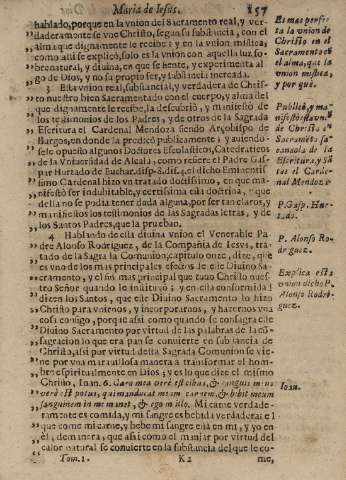 Maria de Iesus. 157
hablado, porque en la vnion del Sacramento real, y ver-
daderamente se vne Christo, segun su substancia, con el
alma que dignamente le recibe; y en la vnion mistica
como alli se explicò, solo es la vnion con aquella luz so-
brenatural, y diuina, en que se siente, y experimenta al-
go de Dios, y no su propio ser, y substancia increada.
3 Esta vnion real, substancial, y verdadera de Chris-
to nuestro bien Sacramentado con el cuerpo, y alma del
que dignamente le recibe, la descubriò, y manifestò de
los testimonios de los Padres, y de otros de la Sagrada
Escritura el Cardenal Mendoza siendo Arçobispo de
Burgos, en donde la predicò publicamente; y auiendo-
sele opuesto algunos Doctores Escolasticos, Catedraticos
de la Vniuersidad de Alcalà, como refiere el Padre Gas-
par Hurtado de Euchar. disp. 8. dif. 4. el dicho Eminentis-
simo Cardenal hizo vn tratado doctissimo, en que ma-
nifestò ser indubitable, y certissima esta doctrina, y que
della no se podia tener duda alguna, por ser tan claros, y
manifiestos los testimonios de las Sagradas letras, y de
los Santos Padres, que la prueban.
4 Hablando de esta diuina vnion el Venerable Pa-
dre Alonso Rodriguez, de la Compañia de Iesvs, tra-
tado de la Sagrada Comunion, capitulo onze, dize, que
es vno de los mas principales efectos de este Diuino Sa-
cramento, y el fin mas principal que tuuo Christo nues-
tro Señor quando le instituyò; y en esta conformidad
dizen los Santos, que este Diuino Sacramento lo hizo
Christo para vnirnos, y incorporarnos, y hazernos vna
cosa consigo, porque assi como quando se consagra este
Diuino Sacramento por virtud de las palabras de la co-
sagracion lo que era pan se conuierte en substancia de
Christo, assi por virtud desta Sagrada Comunion se vie-
ne por vna marauillosa manera a transformar el hom-
bre espiritualmente en Dios; y es lo que dize el mismo
Christo, Ioan. 6. Caro mea verè est cibus, & sanguis meus
verè est potus, qui manducat meam carnem, & bibit meum
sanguinem in me manet, & ego in illo. Mi carne verdade-
ramente es comida, y mi sangre es bebida verdadera: el
que come mi carne, y bebe mi sangre està en mi, y yo en
èl; de manera, que assi como el manjar por virtud del
calor natural se conuierte en la substancia del que lo co-
Tom. 1. K2 me,
Es mas perfe-
ta la vnion de
Christo en el
Sacramento co
el alma, que la
vnion mistica,
y por què.
P. Gasp. Hur-
tado.
P. Alonso Ro-
driguez.
Explica esta
vnion dicho P.
Alonso Rodri-
guez.
Ioan.